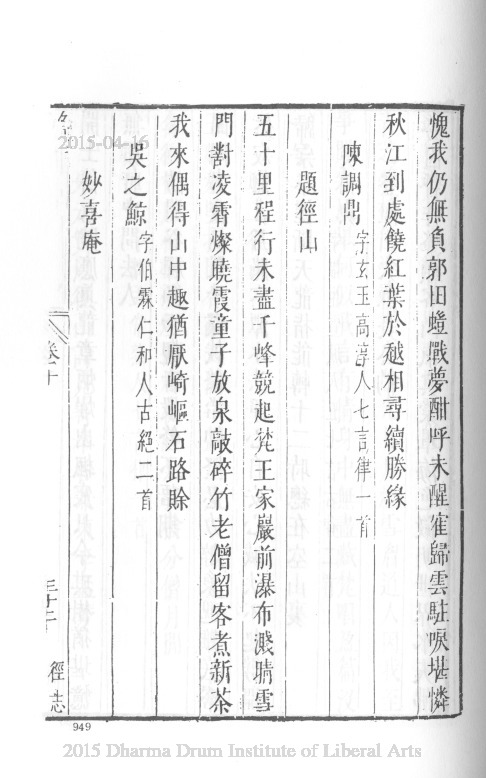 愧我仍無負郭田蟻戰夢酣呼未醒寉歸雲駐唳堪憐
秋江到處饒紅葉於越相尋續勝緣
陳調鼎字玄玉高淳人七言律一首
題徑山
五十里程行未盡千峰競起梵王家巖前瀑布濺晴雪
門對凌霄燦曉霞童子放泉敲碎竹老僧留客煮新茶
我來偶得山中趣猶厭崎嶇石路賒
吳之鯨字伯霖仁和人古絕二首
妙喜庵
卷十
三十二
徑志
949
2015-04-16
2015 Dharma Drum Institute of Liberal Arts